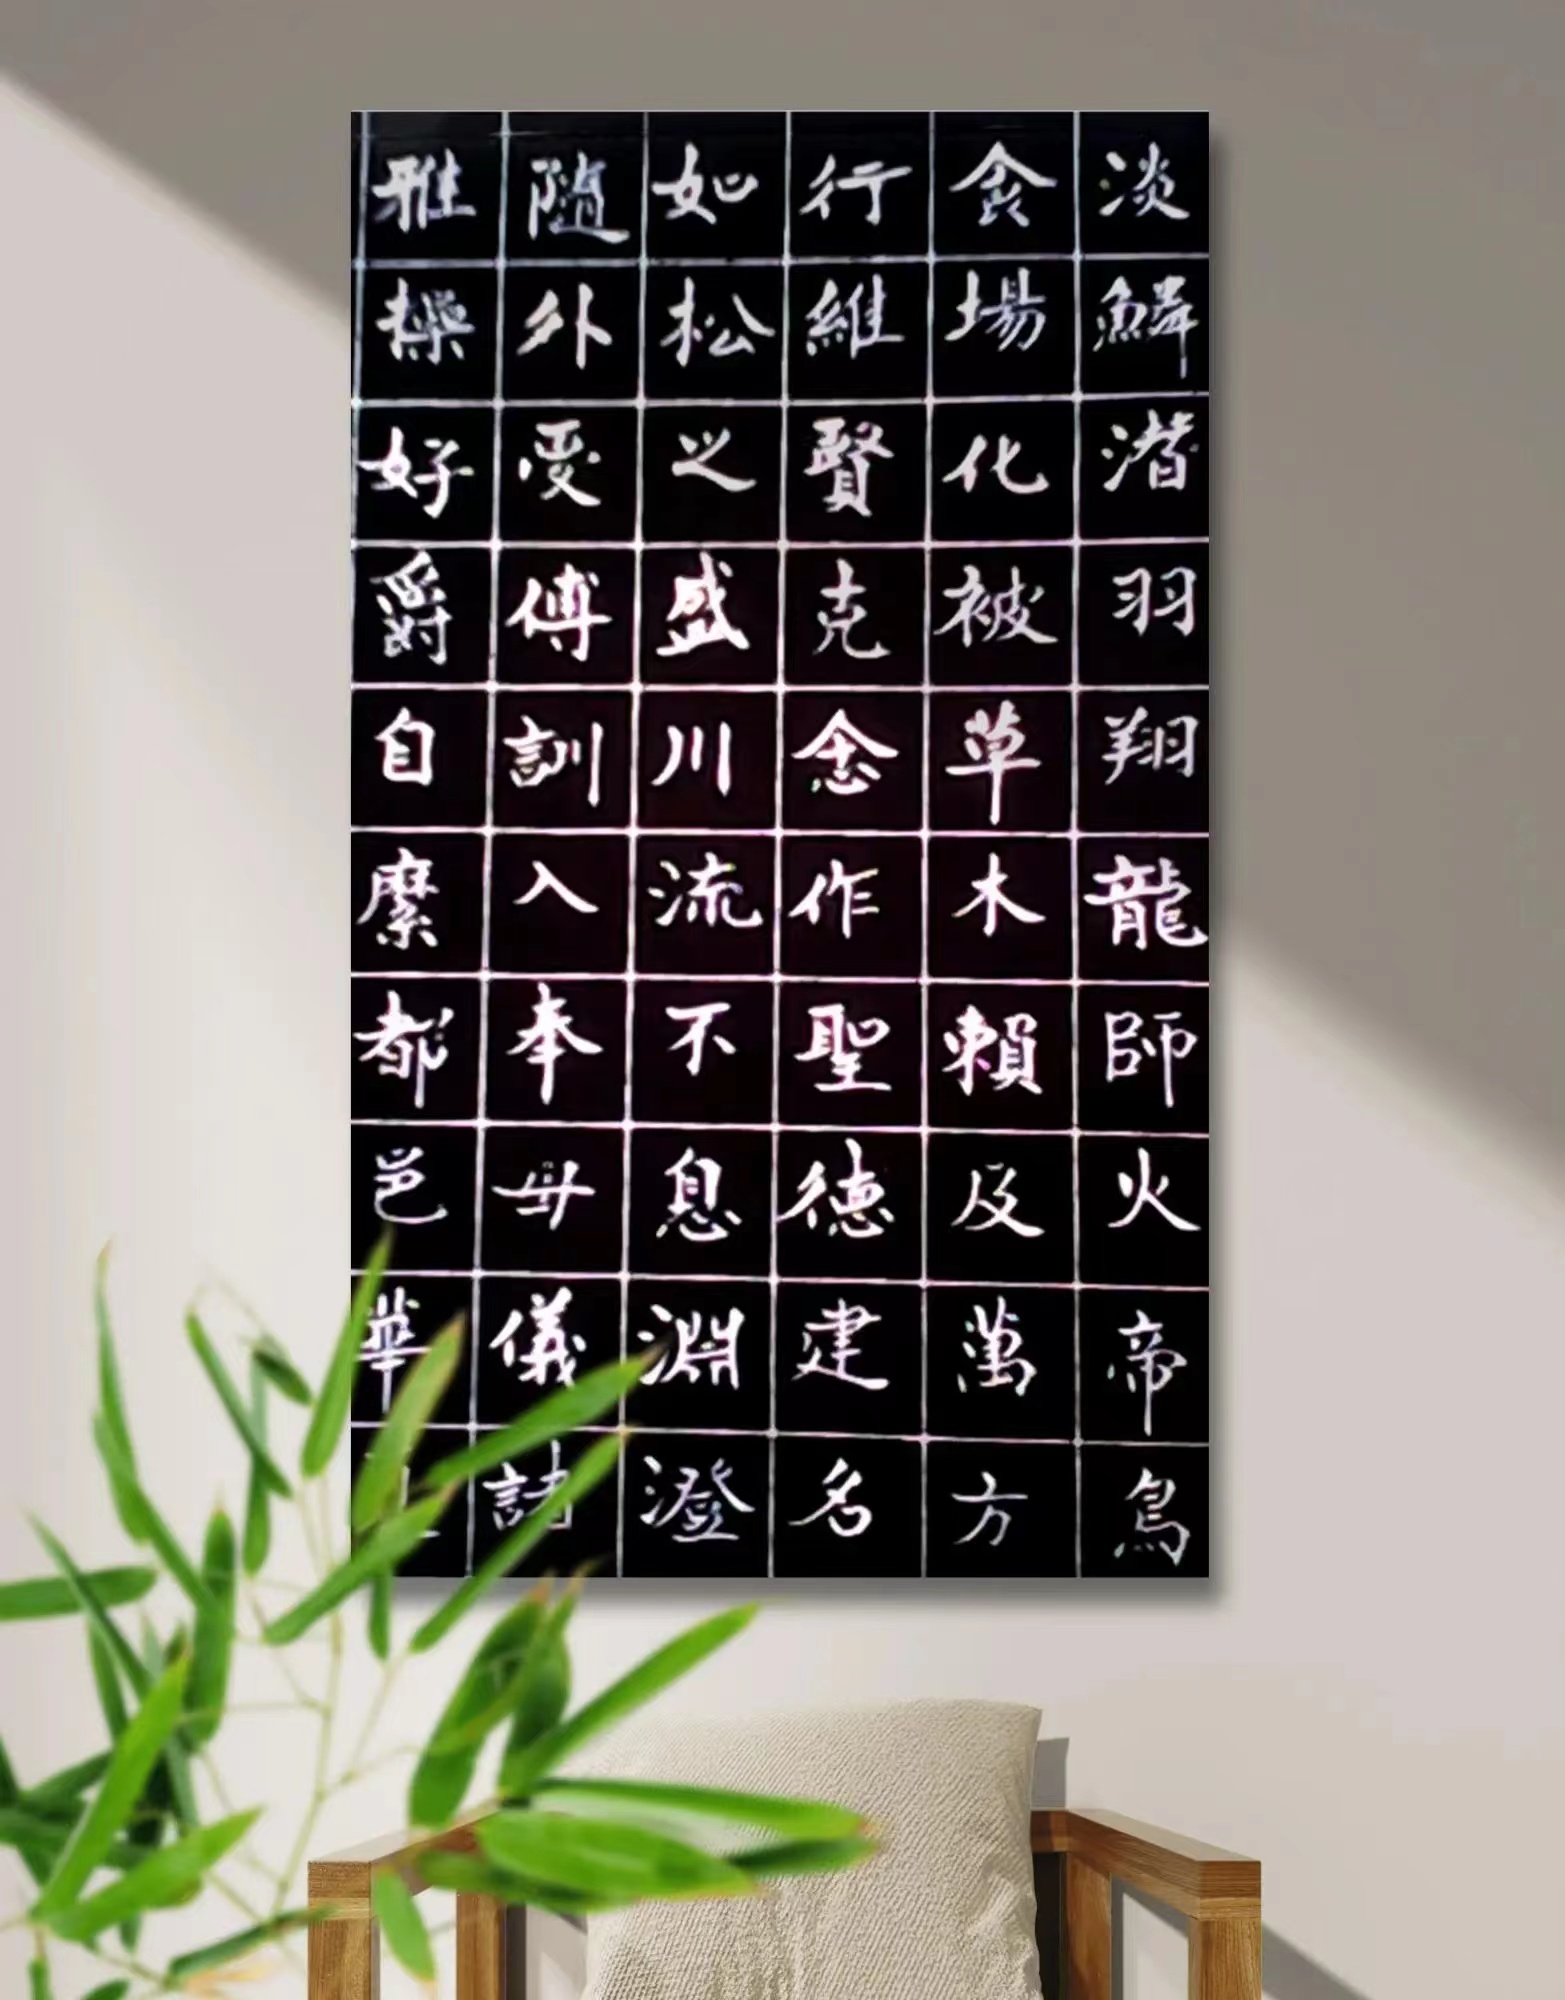 淡鱗潜羽翔龍師火帝鳥
食場化被草木賴及萬方
行維賢克念作聖德建名
如松之盛川流不息淵澄
隨外受傅訓入奉母儀諸
雅操好爵自縻都邑華